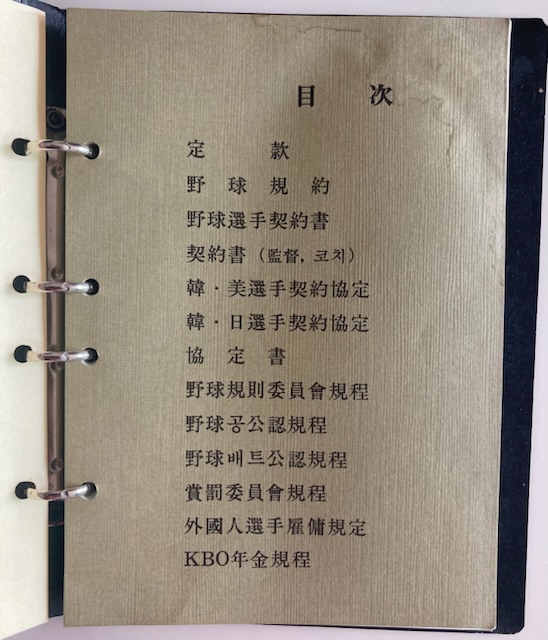 目 次
定 款
野 球 規 約
野球選手契約書
契約書 (監督, 코치)
韓·美選手契約協定
韓·日選手契約協定
協 定 書
野球規則委員會規程
野球공公認規程
野球배트公認規程
賞罰委員會規程
外國人選手雇傭規定
KBO年金規程